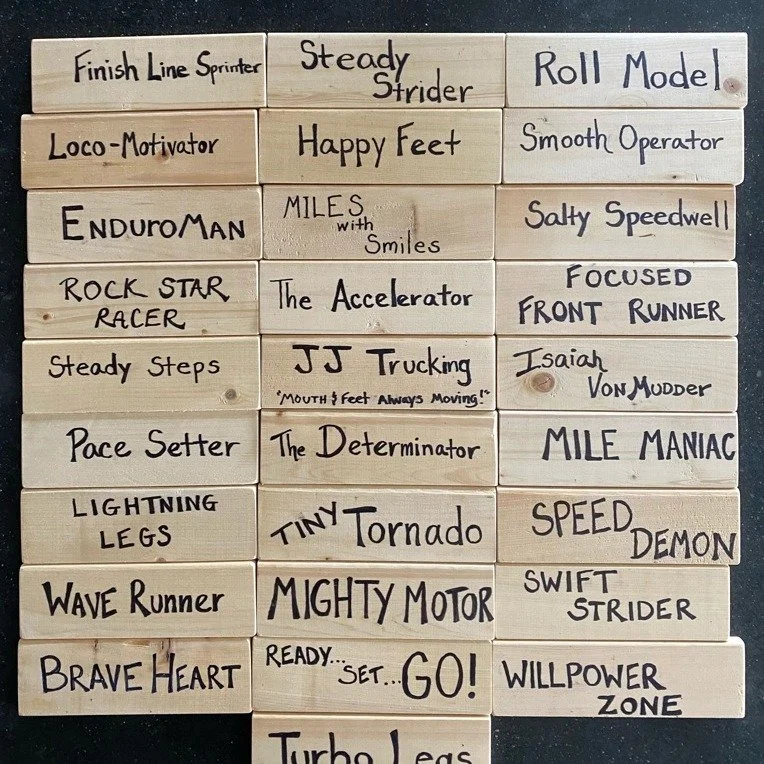 Finish Line Sprinter
Steady
Strider
Roll Model
Loco-Motivator
Happy Feet
Smooth Operator
ENDUROMAN
MILES
with
Smiles
Salty Speedwell
ROCK STAR
RACER
The Accelerator
FOCUSED
FRONT RUNNER
Steady Steps
JJ Trucking
"MOUTH & Feet Always Moving!"
Isaiah
VON MUDDER
Pace Setter
The Determinator
MILE MANIAC
LIGHTNING
LEGS
TINY Tornado
SPEED
DEMON
WAVE Runner
MIGHTY MOTOR
SWIFT
STRIDER
BRAVE HEART
READY...
SET...GO!
WILLPOWER
ZONE
Turbo Legs